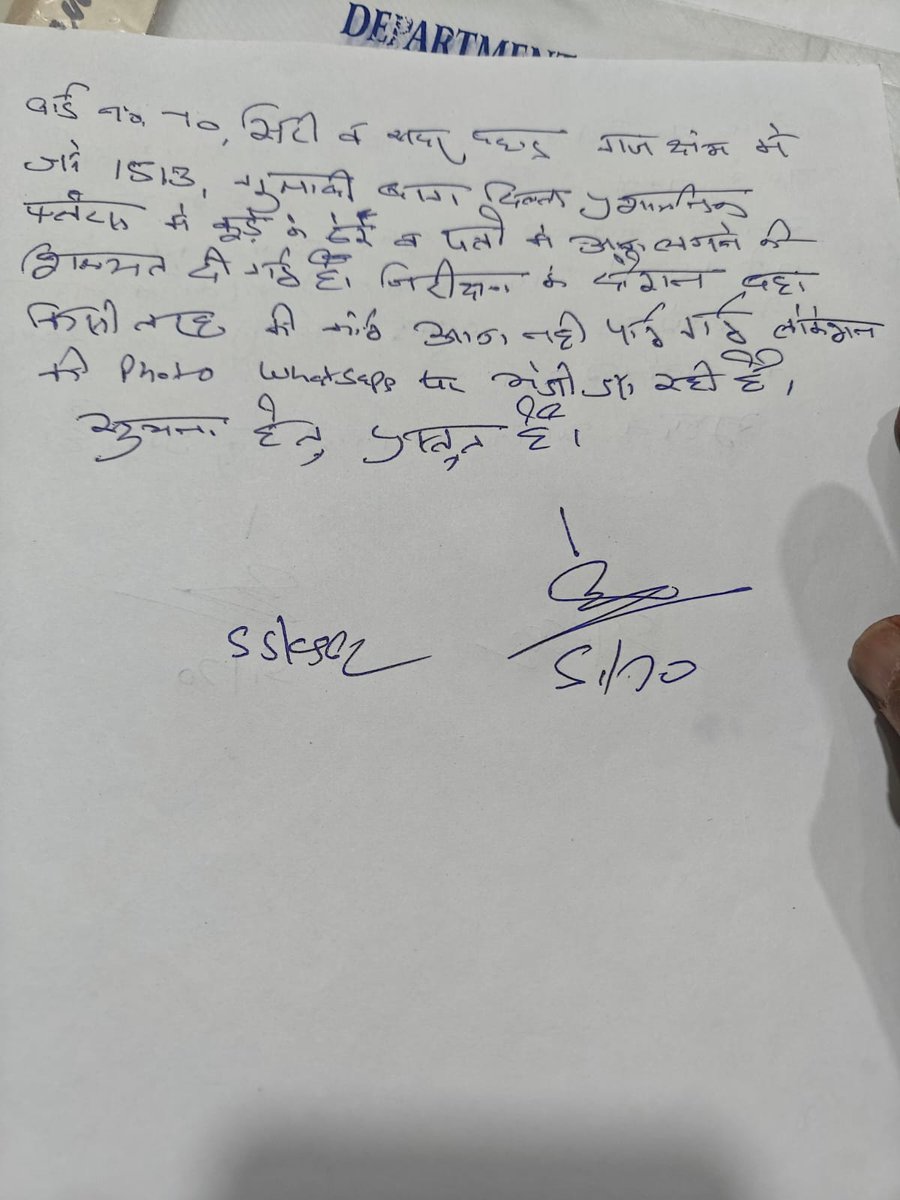 DEPARTMENT
वार्ड नं. 70, सिटी व सदर पहाड़ गंज ज़ोन में
जो 1513, गुलाबी बाग दिल्ली प्रशासनिक
फ्लैटस में कूड़े के ढेर व पत्तों में आग लगने की
शिकायत दी गई है। निरीक्षण के दौरान वहा
किसी तरह की कोई आग नही पाई गई लोकेशन
की Photo Whatsapp पर भेजी जा रही है।
सूचना हेतु प्रस्तुत है।
S.I/70